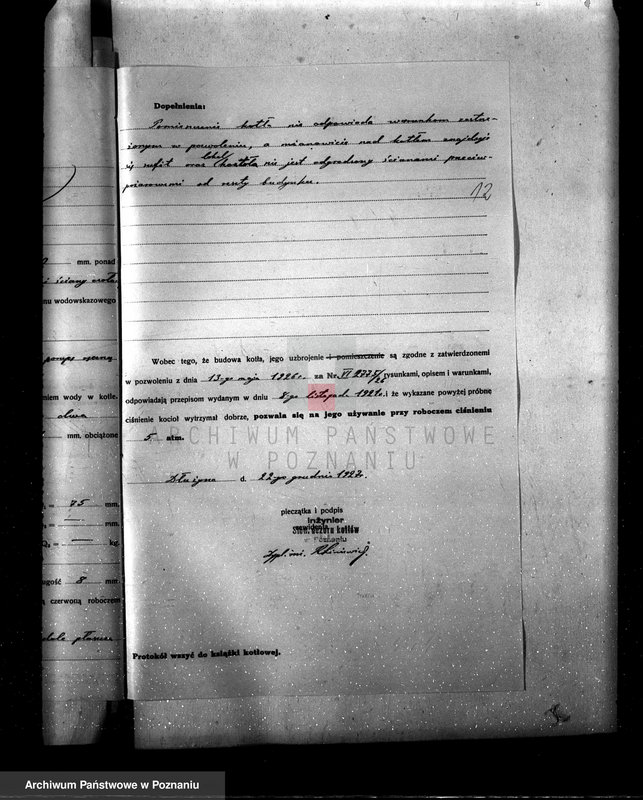 Dopełnienia:
Pomieszczenie kotła nie odpowiada warunkom zastrze-
żonym w pozwoleniu, a mianowicie nad kotłem znajduje
się sufit oraz lokal kotła nie jest odgrodzony ścianami przeciw-
pożarowemi od reszty budynku.
12
mm. ponad
i ściany
nu wodowskazowego
pompę
niem wody w kotle.
mm. obciążone
= 75 mm.
= — mm.
= — kg.
ugość 8 mm.
ą czerwoną roboczem
Wobec tego, że budowa kotła, jego uzbrojenie i pomieszczenie są zgodne z zatwierdzonemi
w pozwoleniu z dnia 13-go maja 1926 r. za Nr. VI 2775/26 rysunkami, opisem i warunkami,
odpowiadają przepisom wydanym w dniu 8-go listopad. 1921 r. i że wykazane powyżej próbne
ciśnienie kocioł wytrzymał dobrze, pozwala się na jego używanie przy roboczem ciśnieniu
5 atm.
ARCHIWUM PAŃSTWOWE
W POZNANIU
d. 22-go grudnia 1927 r.
pieczątka i podpis
Inżynier
Stow. dozoru kotłów
w Poznaniu
Dypl. inż.
Protokół wszyć do książki kotłowej.
Archiwum Państwowe w Poznaniu